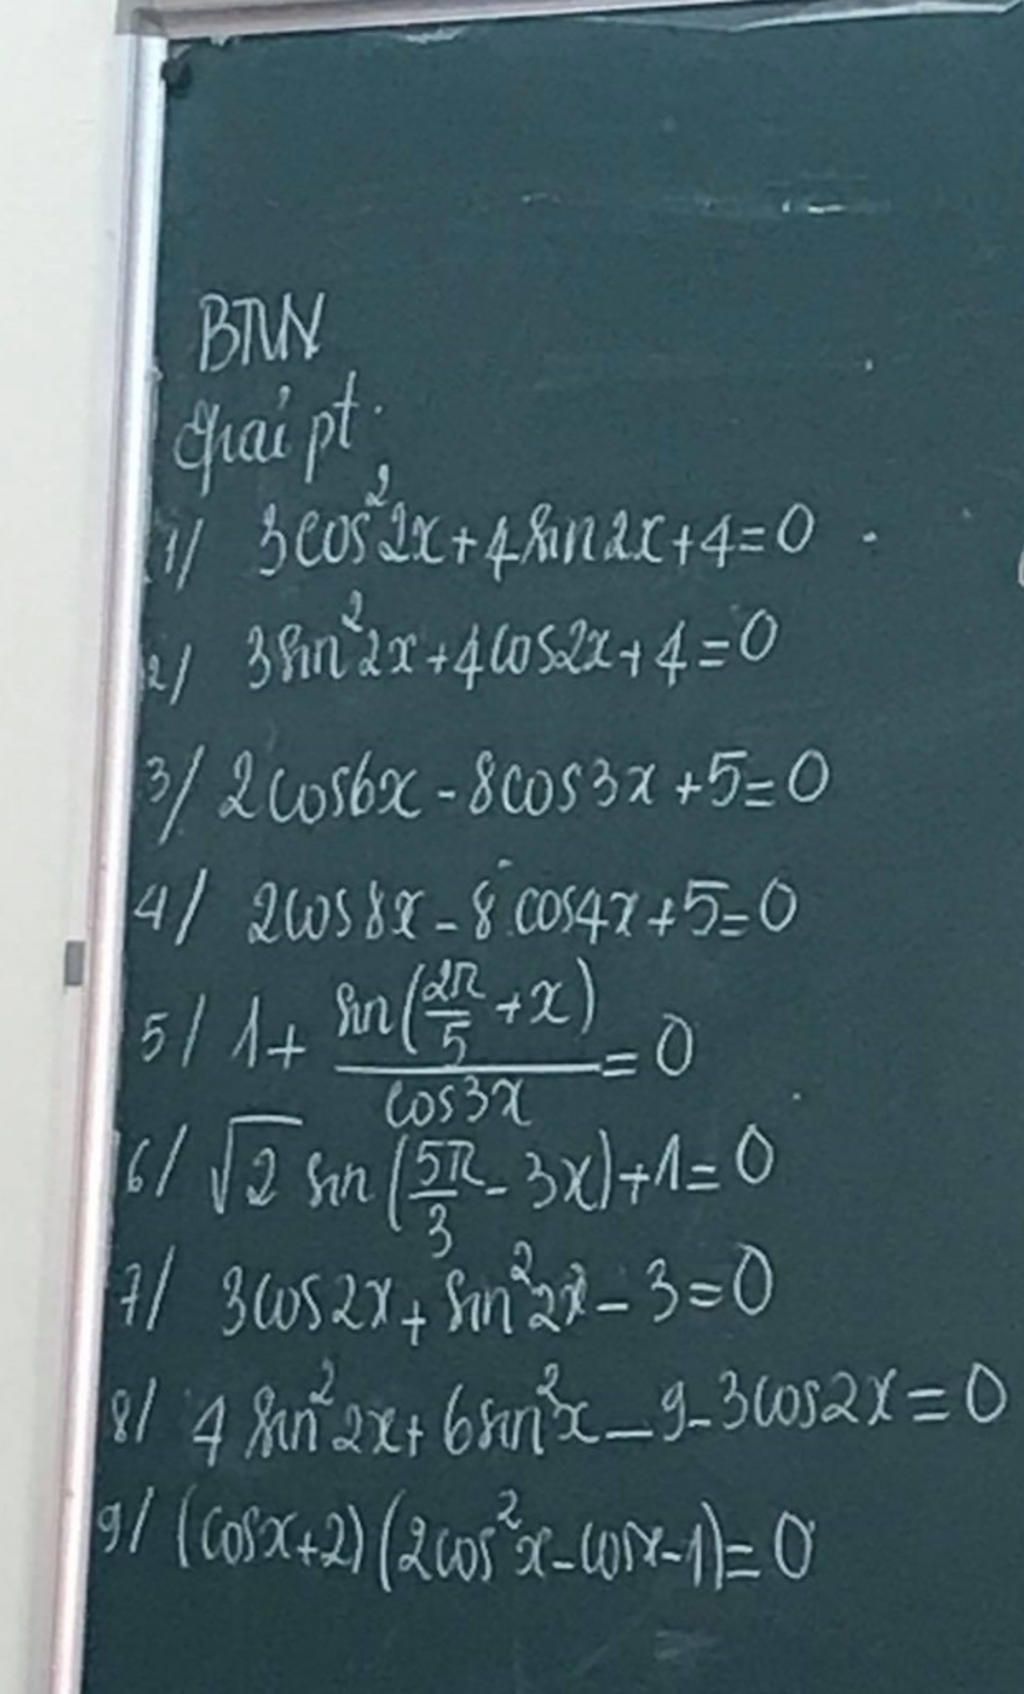 BTVN
Giải pt:
1/ 3cos²2x+4sin2x+4=0
2/ 3sin²2x+4cos2x+4=0
3/ 2cos6x-8cos3x+5=0
4/ 2cos8x-8cos4x+5=0
5/ 1+ sin(2π/5+x)/cos3x=0
6/ √2 sin(5π/3-3x)+1=0
7/ 3cos2x+sin²2x-3=0
8/ 4sin²2x+6sin²x-9-3cos2x=0
9/ (cosx+2)(2cos²x-cosx-1)=0